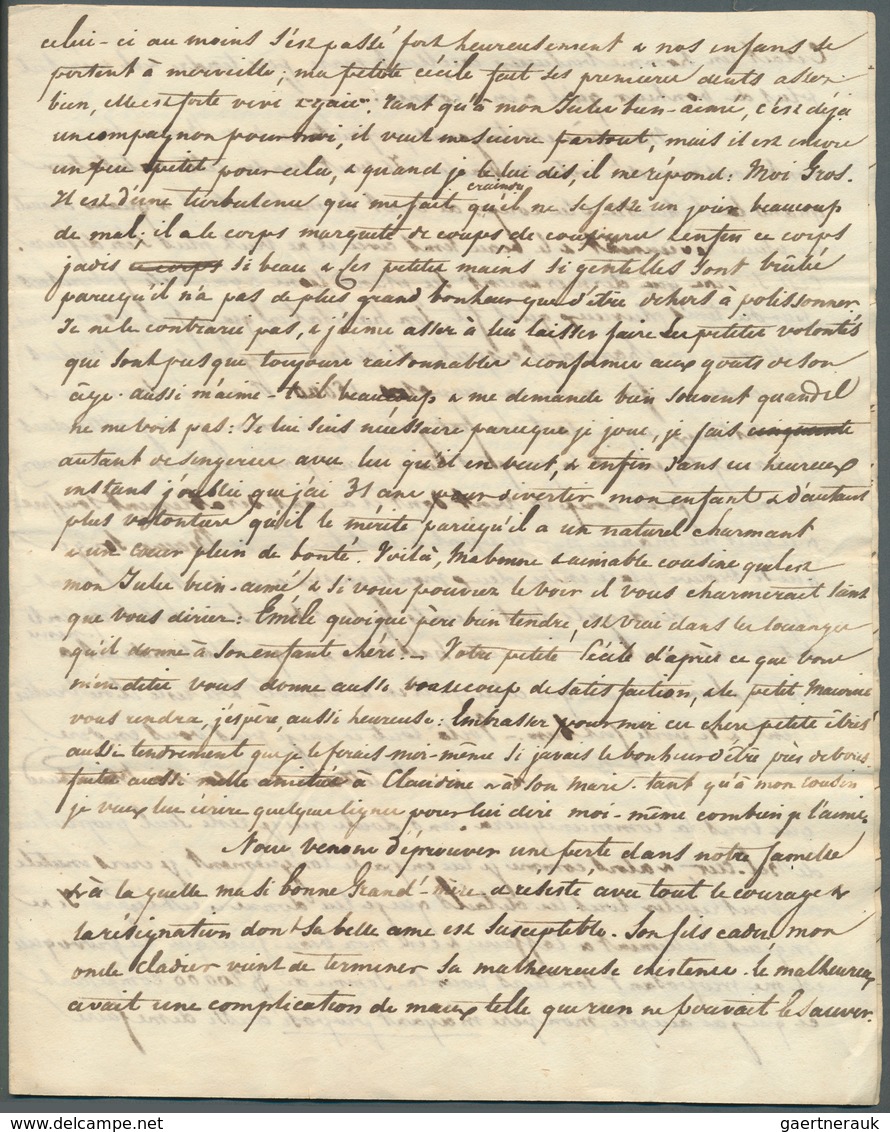 celui-ci au moins s'est passé fort heureusement & nos enfans se
portent à merveille; ma petite Cécile fait ses premières dents assez
bien, elle est forte vive & gaie. Tant qu'à mon Jules bien-aimé, c'est déja
un compagnon pour moi, il veut me suivre partout, mais il est encore
un peu petit pour cela, & quand je le lui dis, il me répond: Moi Gros.
Il est d'une turbulence qui me fait craindre qu'il ne se fasse un jour beaucoup
de mal; il a le corps marqueté de coups de & enfin ce corps
jadis ce corps si beau & ses petites mains si gentilles sont brûlés
parcequ'il n'a pas de plus grand bonheur que d'être dehors à polissonner.
Je ne le contrarie pas, & j'aime assez à lui laisser faire ses petites volontés
que sont presque toujours raisonnables & conformes aux gouts de son
âge. aussi m'aime-t-il beaucoup & me demande bien souvent quand il
ne me voit pas: Je lui suis nécessaire parceque je joue, je fais cinquante
autant de singeries avec lui qu'il en veut, & enfin dans ces heureux
instans j'oublie que j'ai 31 ans pour divertir mon enfant & d'autant
plus volontiers qu'il le mérite parcequ'il a un naturel charmant
& un cœur plein de bonté. Voilà, ma bonne & aimable cousine quel est
mon Jules bien-aimé & si vous pouviez le voir il vous charmerait tant
que vous diriez: Emile quoique père bien tendre, est vrai dans les louanges
qu'il donne à son enfant chéri. – Votre petite Cécile d'après ce que vous
m'en dites vous donne aussi beaucoup de satisfaction, & le petit Maurice
vous rendra, j'espère, aussi heureuse: Embrassez pour moi ces chers petits êtres
aussi tendrement que je le ferais moi-même si j'avais le bonheur d'être près de vous.
faites aussi mille amitiés à Claudine & à son mari. tant qu'à mon cousin
je veux lui écrire quelques lignes pour lui dire moi-même combien je l'aime.
Nous venons d'éprouver une perte dans notre famille
& à la quelle ma si bonne Grand'-mère a résisté avec tout le courage &
la résignation dont sa belle ame est susceptible. Son fils cadet mon
oncle Cladier vient de terminer sa malheureuse existence. le malheureux
avait une complication de maux telle que rien ne pouvait le sauver.
gaertnerauk